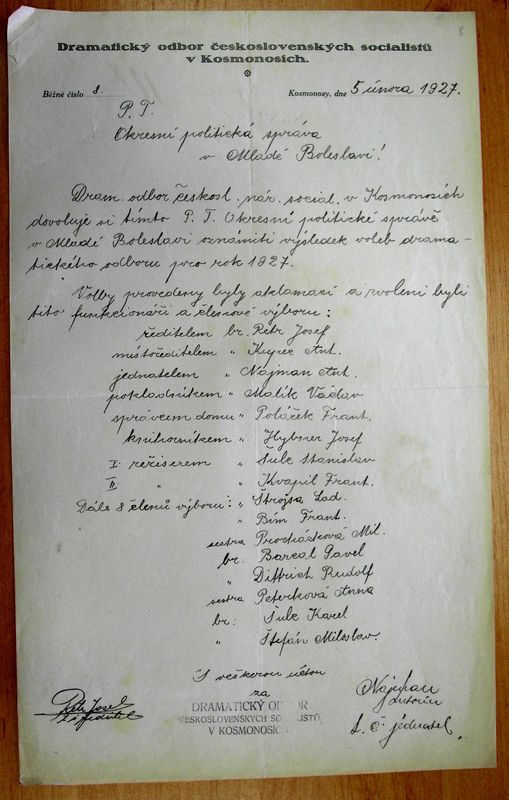 Dramatický odbor československých socialistů
v Kosmonosích.
Běžné číslo 8.
Kosmonosy, dne 5 února 1927.
P. T.
Okresní politická správa
v Mladé Boleslavi!
Dram. odbor českosl. nár. social. v Kosmonosích
dovoluje si tímto P. T. Okresní politické správě
v Mladé Boleslavi oznámiti výsledek voleb drama-
tického odboru pro rok 1927.
Volby provedeny byly aklamací a zvoleni byli
tito funkcionáři a členové výboru:
ředitelem br. Petr Josef
místoředitelem " Kupec Ant.
jednatelem " Najman Ant.
pokladníkem " Malík Václav
správcem domu " Poláček Frant.
knihovníkem " Hybner Josef
I. režiserem " Šulc Stanislav
II. " " Kvapil Frant.
Dále 8 členů výboru: " Štrojsa Lad.
" Bím Frant.
sestra Procházková Mil.
br. Barcal Pavel
" Dittrich Rudolf
sestra Peterková Anna
br: Šulc Karel
" Štefán Miloslav.
S veškerou úctou
za
DRAMATICKÝ ODBOR
ČESKOSLOVENSKÝCH SOCIALISTŮ
V KOSMONOSÍCH
Petr Josef
t. č. ředitel
Najman
Antonín
t. č. jednatel.